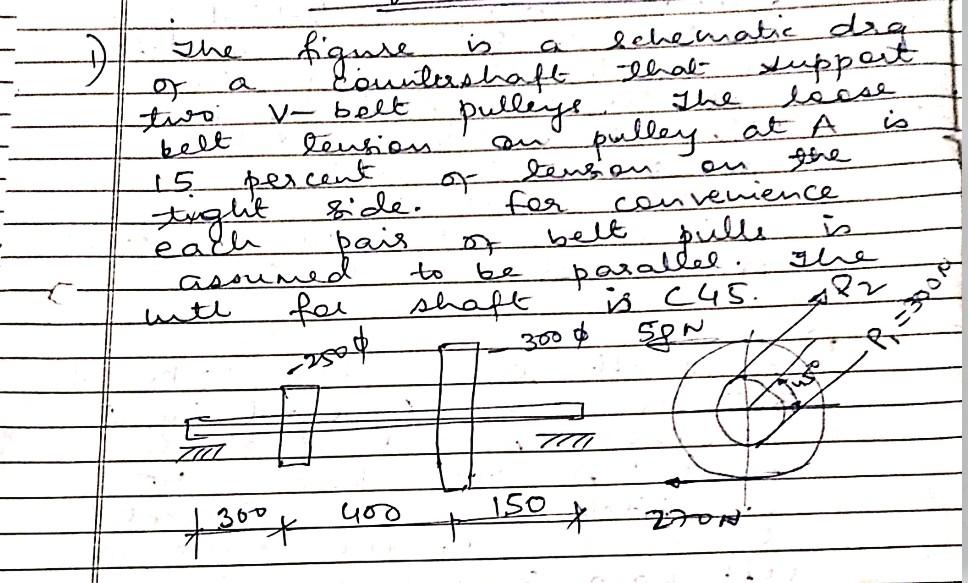 1) The figure is a schematic drg
of a countershaft that support
two V-belt pulleys. The loose
belt tension on pulley at A is
15 percent of tenson on the
tight side. For convenience
each pair of belt pulls is
assumed to be parallel. The
mtl for shaft is C45.
P2
P1=300N
250 φ
300 φ
58N
45°
300
400
150
270N